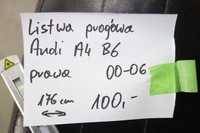 Listwa progowa
Audi A4 B6
prawa 00-06
176 cm 100,-